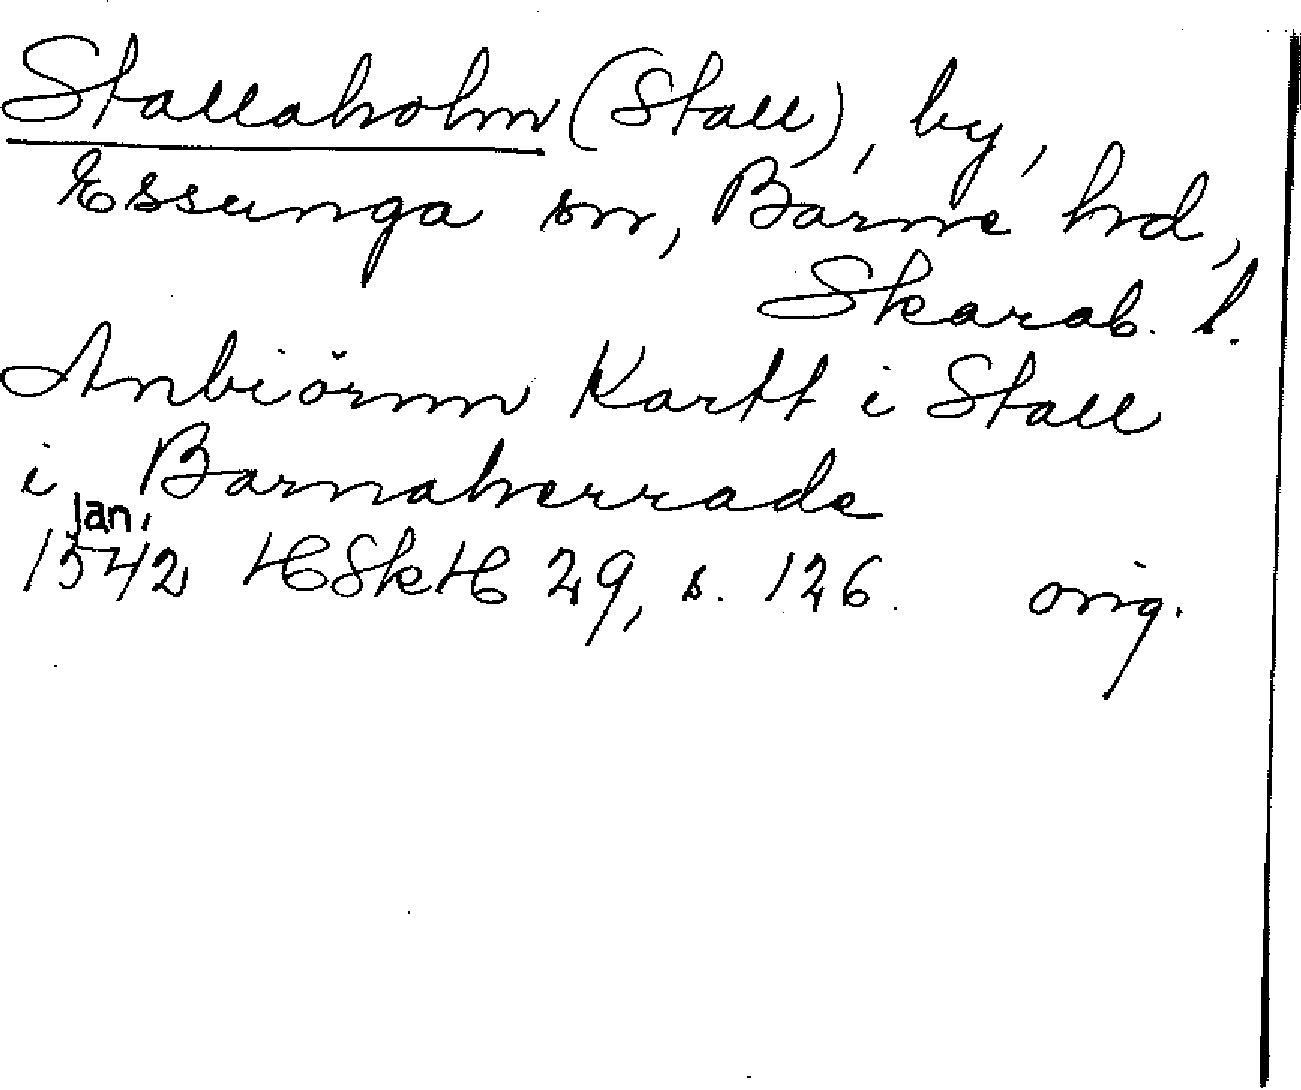 Stallaholm (Stall), by,
Essunga sn, Barne hd,
Skarab. l.
Anbiörnn Kartt i Stall
i Barnaherrade
jan.
1542 HSkH 29, s. 126. orig.